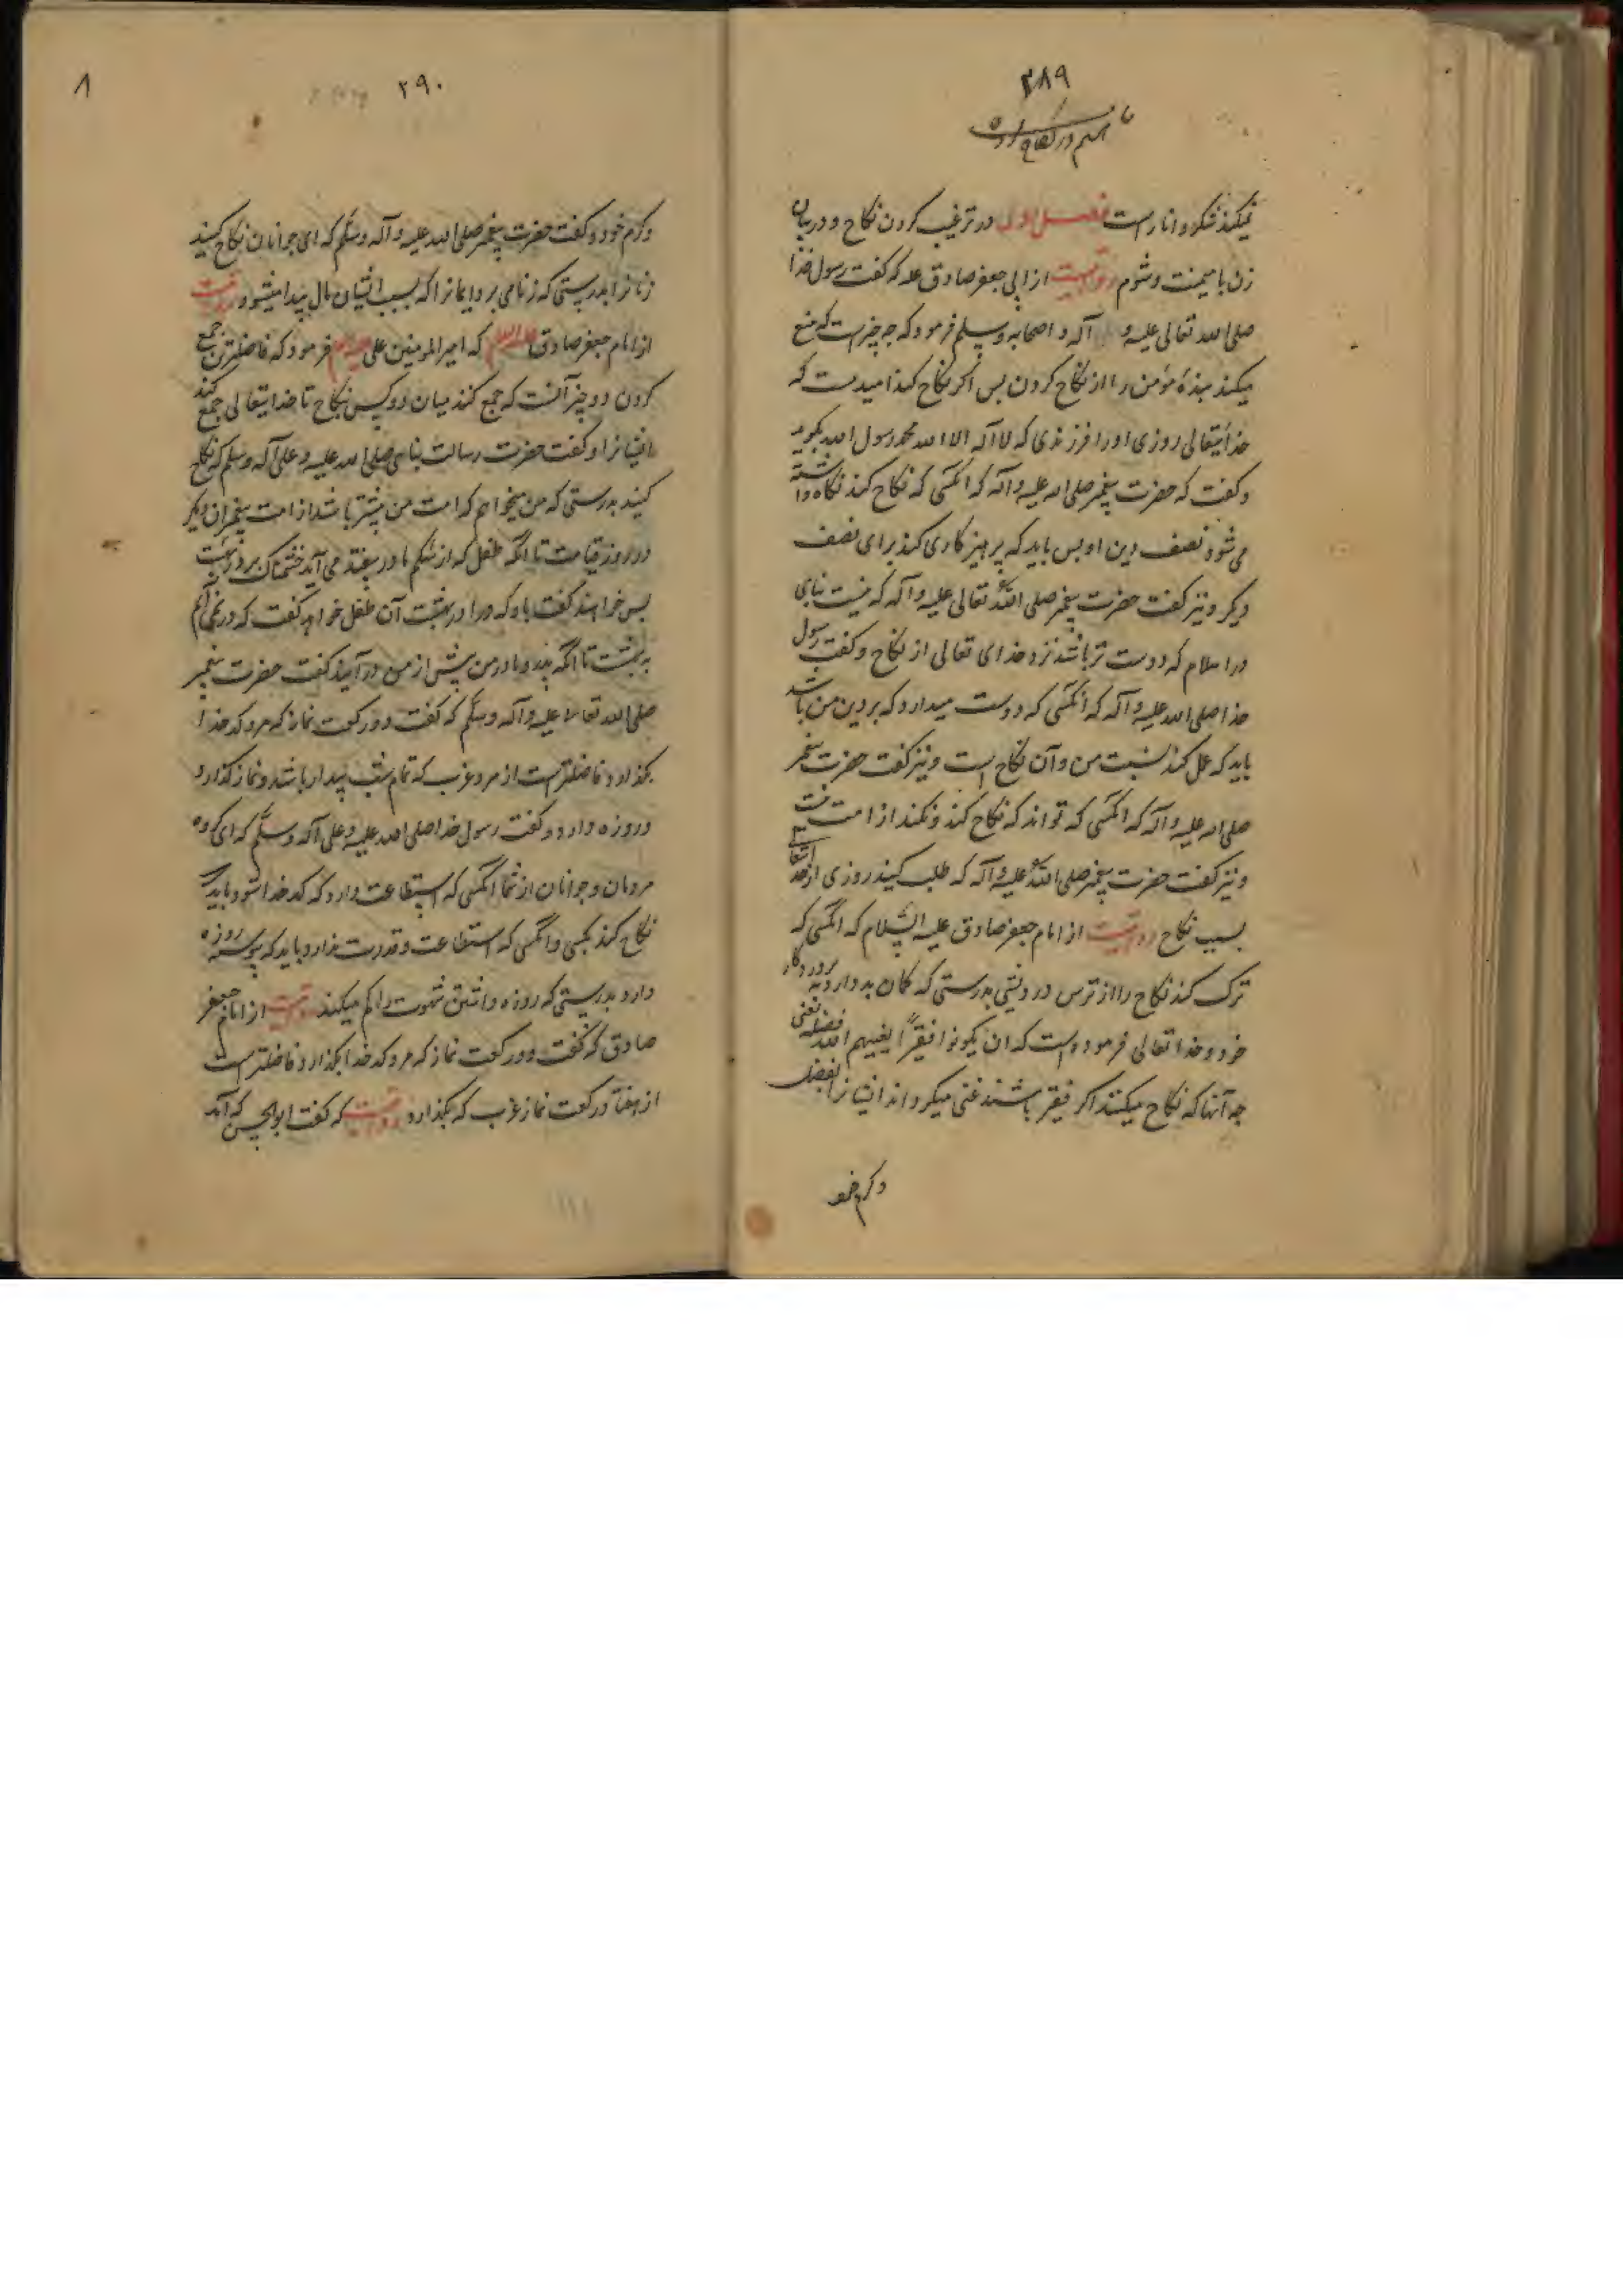 ۲۸۹
نمیکند شکر و انار است فصل اول در ترغیب کردن نکاح و در بیان
زن با میمنت و شوم روایتست از ابی جعفر صادق عله که گفت رسول خدا
صلی الله تعالی علیه و آله و اصحابه و سلم فرمود که چه چیز است که منع
میکند بنده مؤمن را از نکاح کردن بس اکر نکاح کند امید ست که
خدایتعالی روزی او را فرزندی که لا اله الا الله محمد رسول الله بگوید
و گفت که حضرت پیغمبر صلی الله علیه و اله که انکسی که نکاح کند نکاه داشته
می شود نصف دین او بس باید که پرهیز کاری کند برای نصف
دیکر و نیز گفت حضرت پیغمبر صلی الله تعالی علیه و آله که نیست بنای
در اسلام که دوست تر باشد نزد خدای تعالی از نکاح و گفت رسول
خدا صلی الله علیه و آله که انکسی که دوست میدارد که بر دین من باشد
باید که عمل کند بسنت من و آن نکاح است و نیز گفت حضرت پیغمبر
صلی الله علیه و آله که انکسی که تواند که نکاح کند و نکند از امت من نیست
و نیز گفت حضرت پیغمبر صلی الله علیه و آله که طلب کنید روزی از خدایتعالی
بسبب نکاح روایتست از امام جعفر صادق علیه السلام که انکسی که
ترک کند نکاح را از ترس درویشی بدرستی که کمان بد دارد به پروردکار
خود و خدا تعالی فرموده است که ان یکونوا فقرآ یغنیهم الله من فضله یعنی
چه آنها که نکاح میکنند اکر فقیر باشند غنی میکرداند ایشانرا بفضل
و کرم خود
۲۹۰
۸
و کرم خود و گفت حضرت پیغمبر صلی الله علیه و آله و سلم که ای جوانان نکاح کنید
زنانرا بدرستی که زنا می برد ایمانرا که بسبب ایشان مال پیدا میشود روایتست
از امام جعفر صادق علیه السلام که امیر المومنین علی فرمود که فاضلترین جمع
کردن دو چیز آنست که جمع کند میان دو کس بنکاح تا خدایتعالی جمع کند
ایشانرا و گفت حضرت رسالت پناهی صلی الله علیه و علی آله و سلم که نکاح
کنید بدرستی که من میخواهم که امت من بیشتر باشد از امت پیغمبران دیکر
در روز قیامت تا انکه طفل که از شکم مادر بیفتد می آید خشمناک بر در بهشت
بس خواهند گفت باو که درا در بهشت آن طفل خواهد گفت که در نمی آیم
به بهشت تا انکه پدر و مادر من پیش از من در آیند گفت حضرت پیغمبر
صلی الله تعالی علیه و آله و سلم که گفت دو رکعت نماز که مرد کدخدا
بکذارد فاضلتر است از مرد عزب که تمام شب بیدار باشد و نماز کذارد
و روزه دارد و گفت رسول خدا صلی الله علیه و علی آله و سلم که ای کروه
مردمان و جوانان از شما انکسی که استطاعت دارد که کدخدا شود باید که
نکاح کند بکسی و انکسی که استطاعت و قدرت ندارد باید که پیوسته روزه
دارد بدرستی که روزه داشتن شهوت را کم میکند روایتست از امام جعفر
صادق که گفت دو رکعت نماز که مرد کدخدا بکذارد فاضلتر است
از هفتاد رکعت نماز عزب که بکذارد روایتست که گفت ابو الحسن که آمد